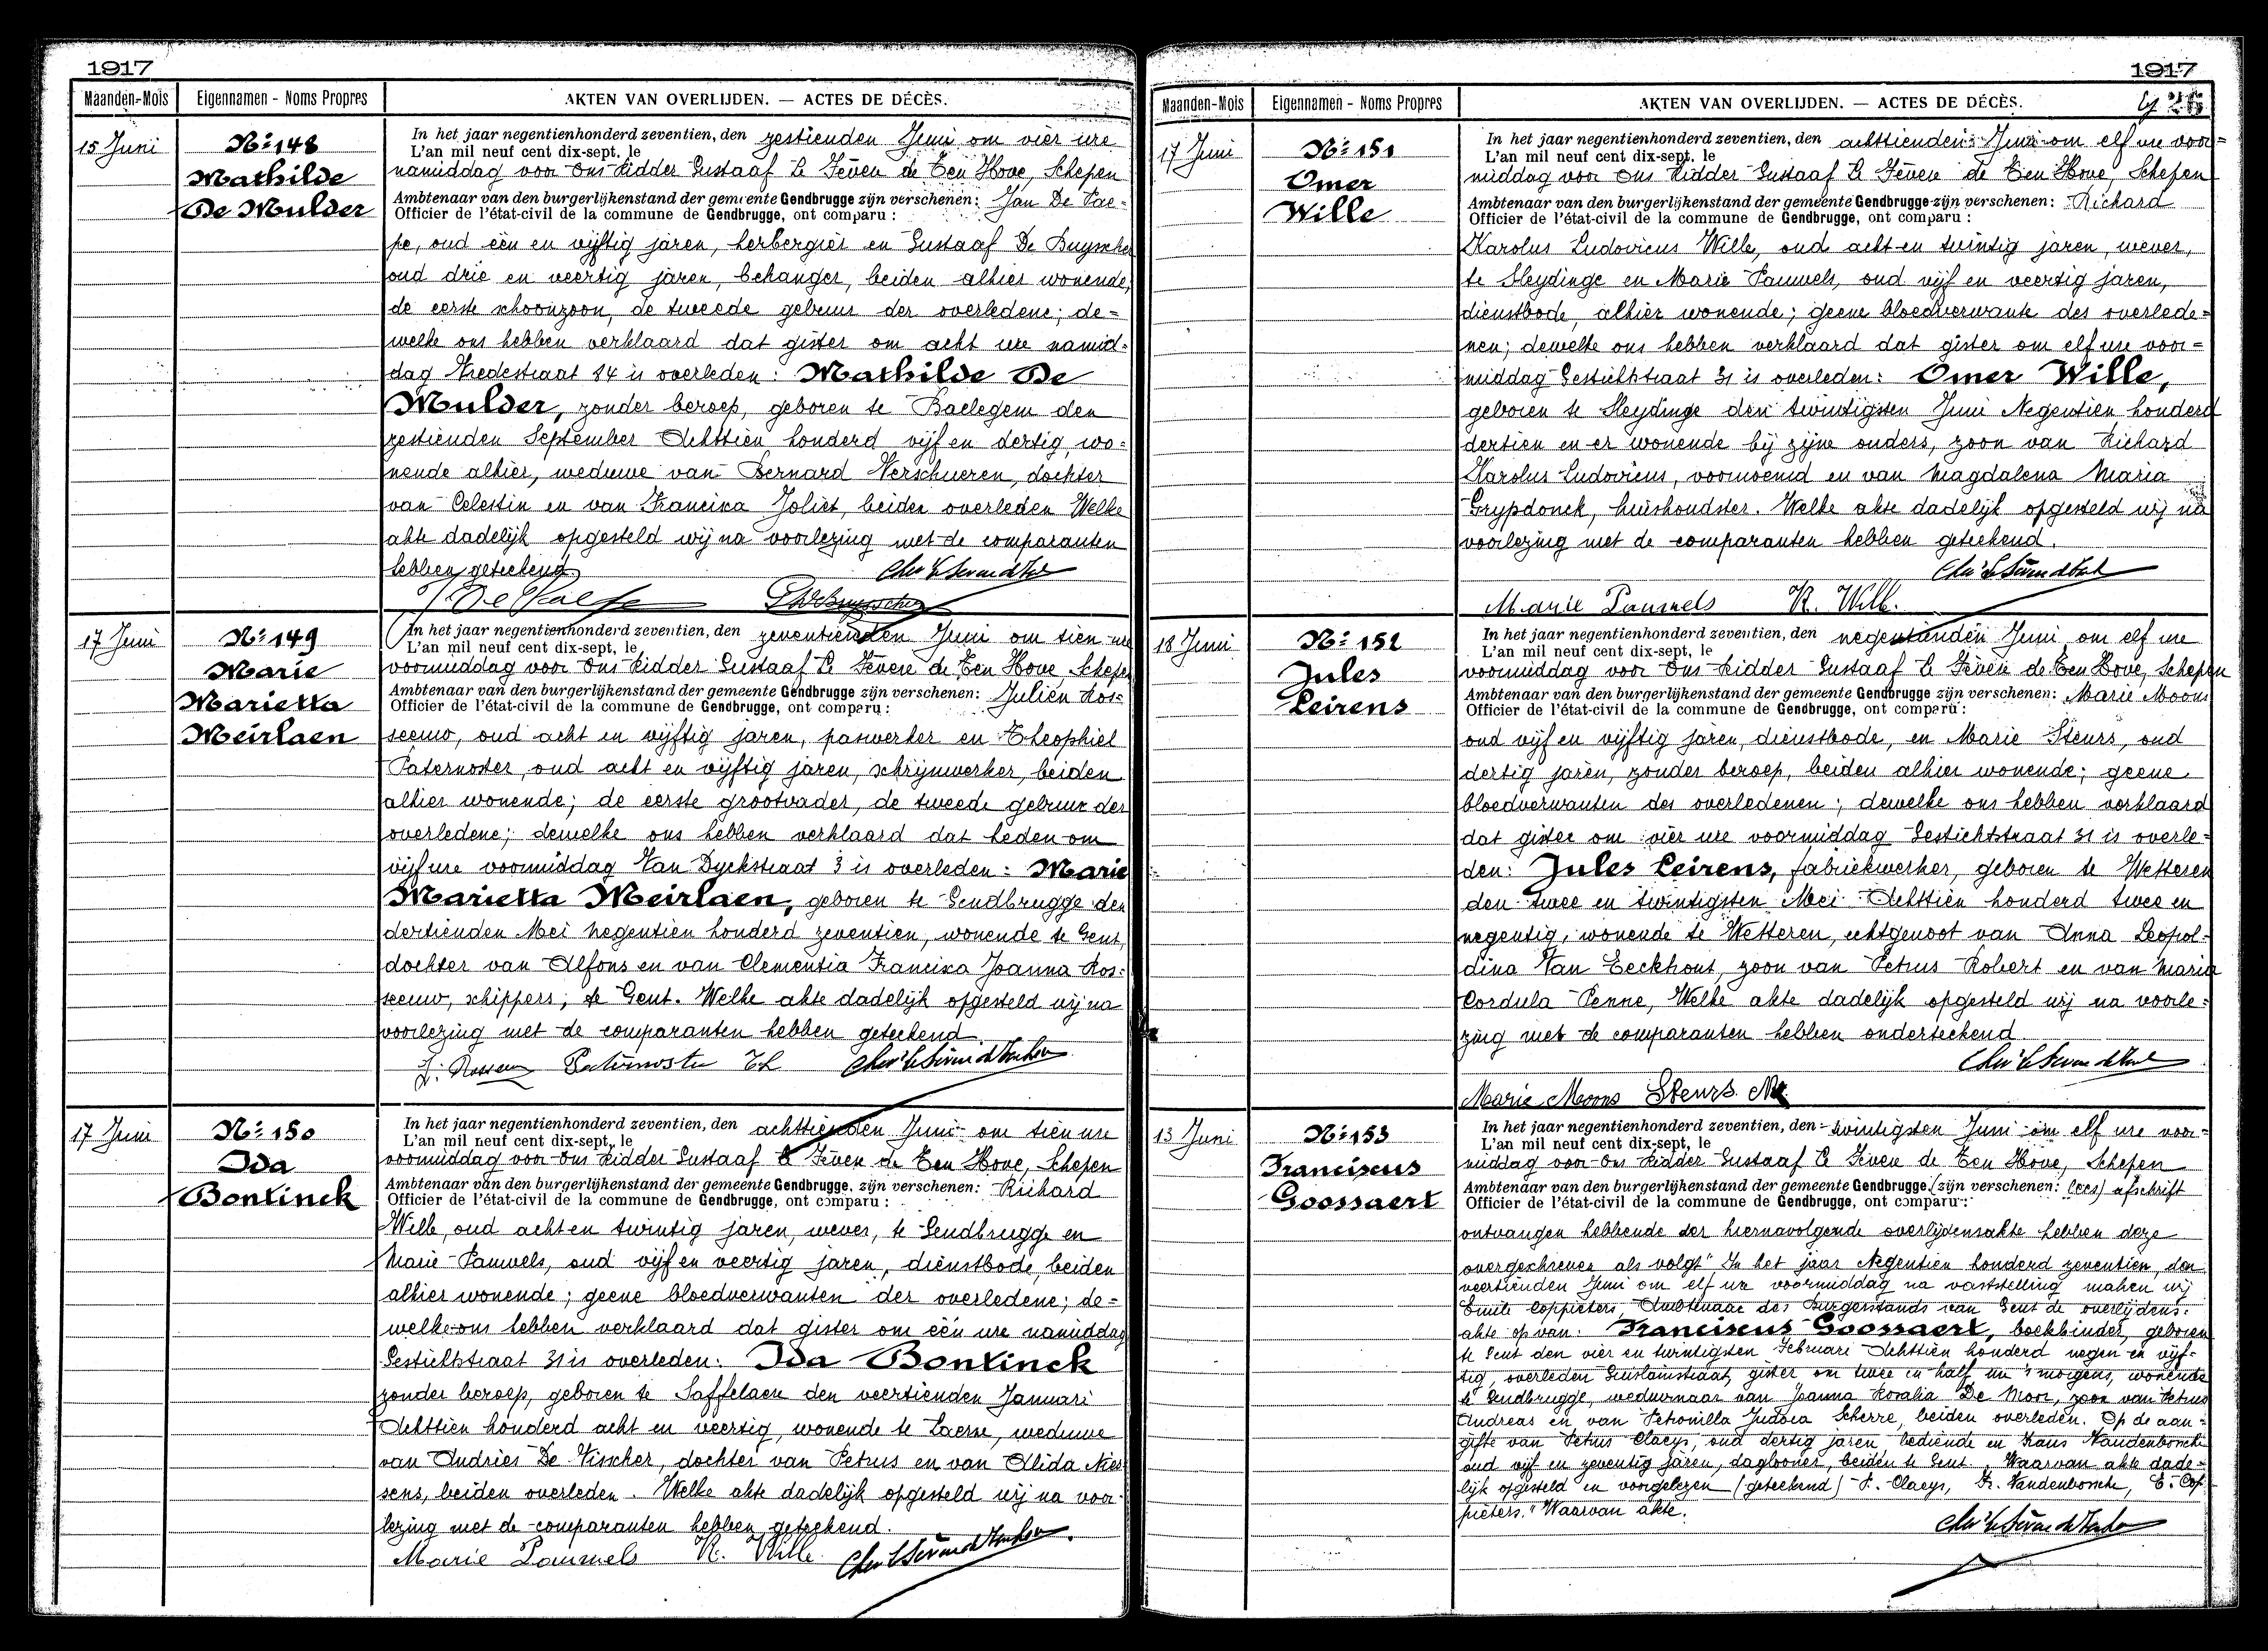 1917
Maanden-Mois Eigennamen - Noms Propres AKTEN VAN OVERLIJDEN. — ACTES DE DÉCÈS.
15 Juni
Nr 148
Mathilde
De Mulder
In het jaar negentienhonderd zeventien, den zestienden Juni om vier ure
L'an mil neuf cent dix-sept, le
namiddag voor Ons Ridder Gustaaf Le Fèvere de Ten Hove, Schepen
Ambtenaar van den burgerlijkenstand der gemeente Gendbrugge zijn verschenen: Jan De Pae-
Officier de l'état-civil de la commune de Gendbrugge, ont comparu :
pe, oud één en vijftig jaren, herbergier en Gustaaf De Buysscher
oud drie en veertig jaren, behanger, beiden alhier wonende,
de eerste schoonzoon, de tweede gebuur der overledene; de=
welke ons hebben verklaard dat gister om acht ure namid-
dag Vredestraat 14 is overleden: Mathilde De
Mulder, zonder beroep, geboren te Baelegem den
zestienden September Achttien honderd vijf en dertig, wo-
nende alhier, weduwe van Bernard Verschueren, dochter
van Celestin en van Francisca Joliet, beiden overleden Welke
akte dadelijk opgesteld wij na voorlezing met de comparanten
hebben geteekend
J. De Paepe
17 Juni
Nr 149
Marie
Marietta
Meirlaen
In het jaar negentienhonderd zeventien, den zeventienden Juni om tien ure
L'an mil neuf cent dix-sept, le
voormiddag voor Ons Ridder Gustaaf Le Fèvere de Ten Hove Schepen
Ambtenaar van den burgerlijkenstand der gemeente Gendbrugge zijn verschenen: Julien Ros-
Officier de l'état-civil de la commune de Gendbrugge, ont comparu :
seeuw, oud acht en vijftig jaren, paswerker en Theophiel
Paternoster, oud acht en vijftig jaren, schrijnwerker, beiden
alhier wonende; de eerste grootvader, de tweede gebuur der
overledene; dewelke ons hebben verklaard dat heden om
vijf ure voormiddag Van Dyckstraat 3 is overleden: Marie
Marietta Meirlaen, geboren te Gendbrugge den
dertienden Mei Negentien honderd zeventien, wonende te Gent,
dochter van Alfons en van Clementia Francisca Joanna Ros-
seeuw, schippers, te Gent. Welke akte dadelijk opgesteld wij na
voorlezing met de comparanten hebben geteekend
J. Rosseeuw Paternoster Th
17 Juni
Nr 150
Ida
Bontinck
In het jaar negentienhonderd zeventien, den achttienden Juni om tien ure
L'an mil neuf cent dix-sept, le
voormiddag voor Ons Ridder Gustaaf Le Fèvere de Ten Hove, Schepen
Ambtenaar van den burgerlijkenstand der gemeente Gendbrugge, zijn verschenen: Richard
Officier de l'état-civil de la commune de Gendbrugge, ont comparu :
Wille, oud acht en twintig jaren, wever, te Gendbrugge en
Marie Pauwels, oud vijf en veertig jaren, dienstbode, beiden
alhier wonende; geene bloedverwanten der overledene; de=
welke ons hebben verklaard dat gister om één ure namiddag
Gestichtstraat 31 is overleden: Ida Bontinck
zonder beroep, geboren te Saffelaen den veertienden Januari
Achttien honderd acht en veertig, wonende te Laerne, weduwe
van Andries De Visscher, dochter van Petrus en van Alida Nies-
sens, beiden overleden. Welke akte dadelijk opgesteld wij na voor-
lezing met de comparanten hebben geteekend.
Marie Pauwels R. Wille
1917
Maanden-Mois Eigennamen - Noms Propres AKTEN VAN OVERLIJDEN. — ACTES DE DÉCÈS. 26
17 Juni
Nr 151
Omer
Wille
In het jaar negentienhonderd zeventien, den achttienden Juni om elf ure voor=
L'an mil neuf cent dix-sept, le
middag voor Ons Ridder Gustaaf Le Fèvere de Ten Hove, Schepen
Ambtenaar van den burgerlijkenstand der gemeente Gendbrugge zijn verschenen: Richard
Officier de l'état-civil de la commune de Gendbrugge, ont comparu :
Karolus Ludovicus Wille, oud acht en twintig jaren, wever,
te Sleydinge en Marie Pauwels, oud vijf en veertig jaren,
dienstbode, alhier wonende; geene bloedverwante des overlede=
nen; dewelke ons hebben verklaard dat gister om elf ure voor=
middag Gestichtstraat 31 is overleden: Omer Wille,
geboren te Sleydinge den twintigsten Juni Negentien honderd
dertien en er wonende bij zijne ouders, zoon van Richard
Karolus Ludovicus, voornoemd en van Magdalena Maria
Grypdonck, huishoudster. Welke akte dadelijk opgesteld wij na
voorlezing met de comparanten hebben geteekend.
Marie Pauwels R. Wille.
18 Juni
Nr 152
Jules
Leirens
In het jaar negentienhonderd zeventien, den negentienden Juni om elf ure
L'an mil neuf cent dix-sept, le
voormiddag voor Ons Ridder Gustaaf Le Fèvere de Ten Hove, Schepen
Ambtenaar van den burgerlijkenstand der gemeente Gendbrugge zijn verschenen: Marie Moons
Officier de l'état-civil de la commune de Gendbrugge, ont comparu :
oud vijf en vijftig jaren, dienstbode, en Marie Steurs, oud
dertig jaren, zonder beroep, beiden alhier wonende; geene
bloedverwanten des overledenen; dewelke ons hebben verklaard
dat gister om vier ure voormiddag Gestichtstraat 31 is overle-
den: Jules Leirens, fabriekwerker, geboren te Wetteren
den twee en twintigsten Mei Achttien honderd twee en
negentig, wonende te Wetteren, echtgenoot van Anna Leopol-
dina Van Eeckhout, zoon van Petrus Robert en van Maria
Cordula Penne, Welke akte dadelijk opgesteld wij na voorle-
zing met de comparanten hebben onderteekend
Marie Moons Steurs
13 Juni
Nr 153
Franciscus
Goossaert
In het jaar negentienhonderd zeventien, den twintigsten Juni om elf ure voor-
L'an mil neuf cent dix-sept, le
middag voor Ons Ridder Gustaaf Le Fèvere de Ten Hove, Schepen
Ambtenaar van den burgerlijkenstand der gemeente Gendbrugge (zijn verschenen: lees) afschrift
Officier de l'état-civil de la commune de Gendbrugge, ont comparu :
ontvangen hebbende der hiernavolgende overlijdensakte hebben deze
overgeschreven als volgt "In het jaar Negentien honderd zeventien, den
veertienden Juni om elf ure voormiddag na vaststelling maken wij
Emile Coppieters, Ambtenaar des Burgerstands van Gent de overlijdens-
akte op van: Franciscus Goossaert, boekbinder, geboren
te Gent den vier en twintigsten Februari Achttien honderd negen en vijf-
tig, overleden Guislainstraat, gister om twee en half ure 's morgens, wonende
te Gendbrugge, weduwnaar van Joanna Rosalia De Moor, zoon van Petrus
Andreas en van Petronilla Judoca Scherre, beiden overleden. Op de aan-
gifte van Petrus Claeys, oud dertig jaren, bediende en Frans Vandenbossche
oud vijf en zeventig jaren, daglooner, beiden te Gent. Waarvan akte dade-
lijk opgesteld en voorgelezen (geteekend) P. Claeys, Fr. Vandenbossche, E. Cop-
pieters." Waarvan akte.